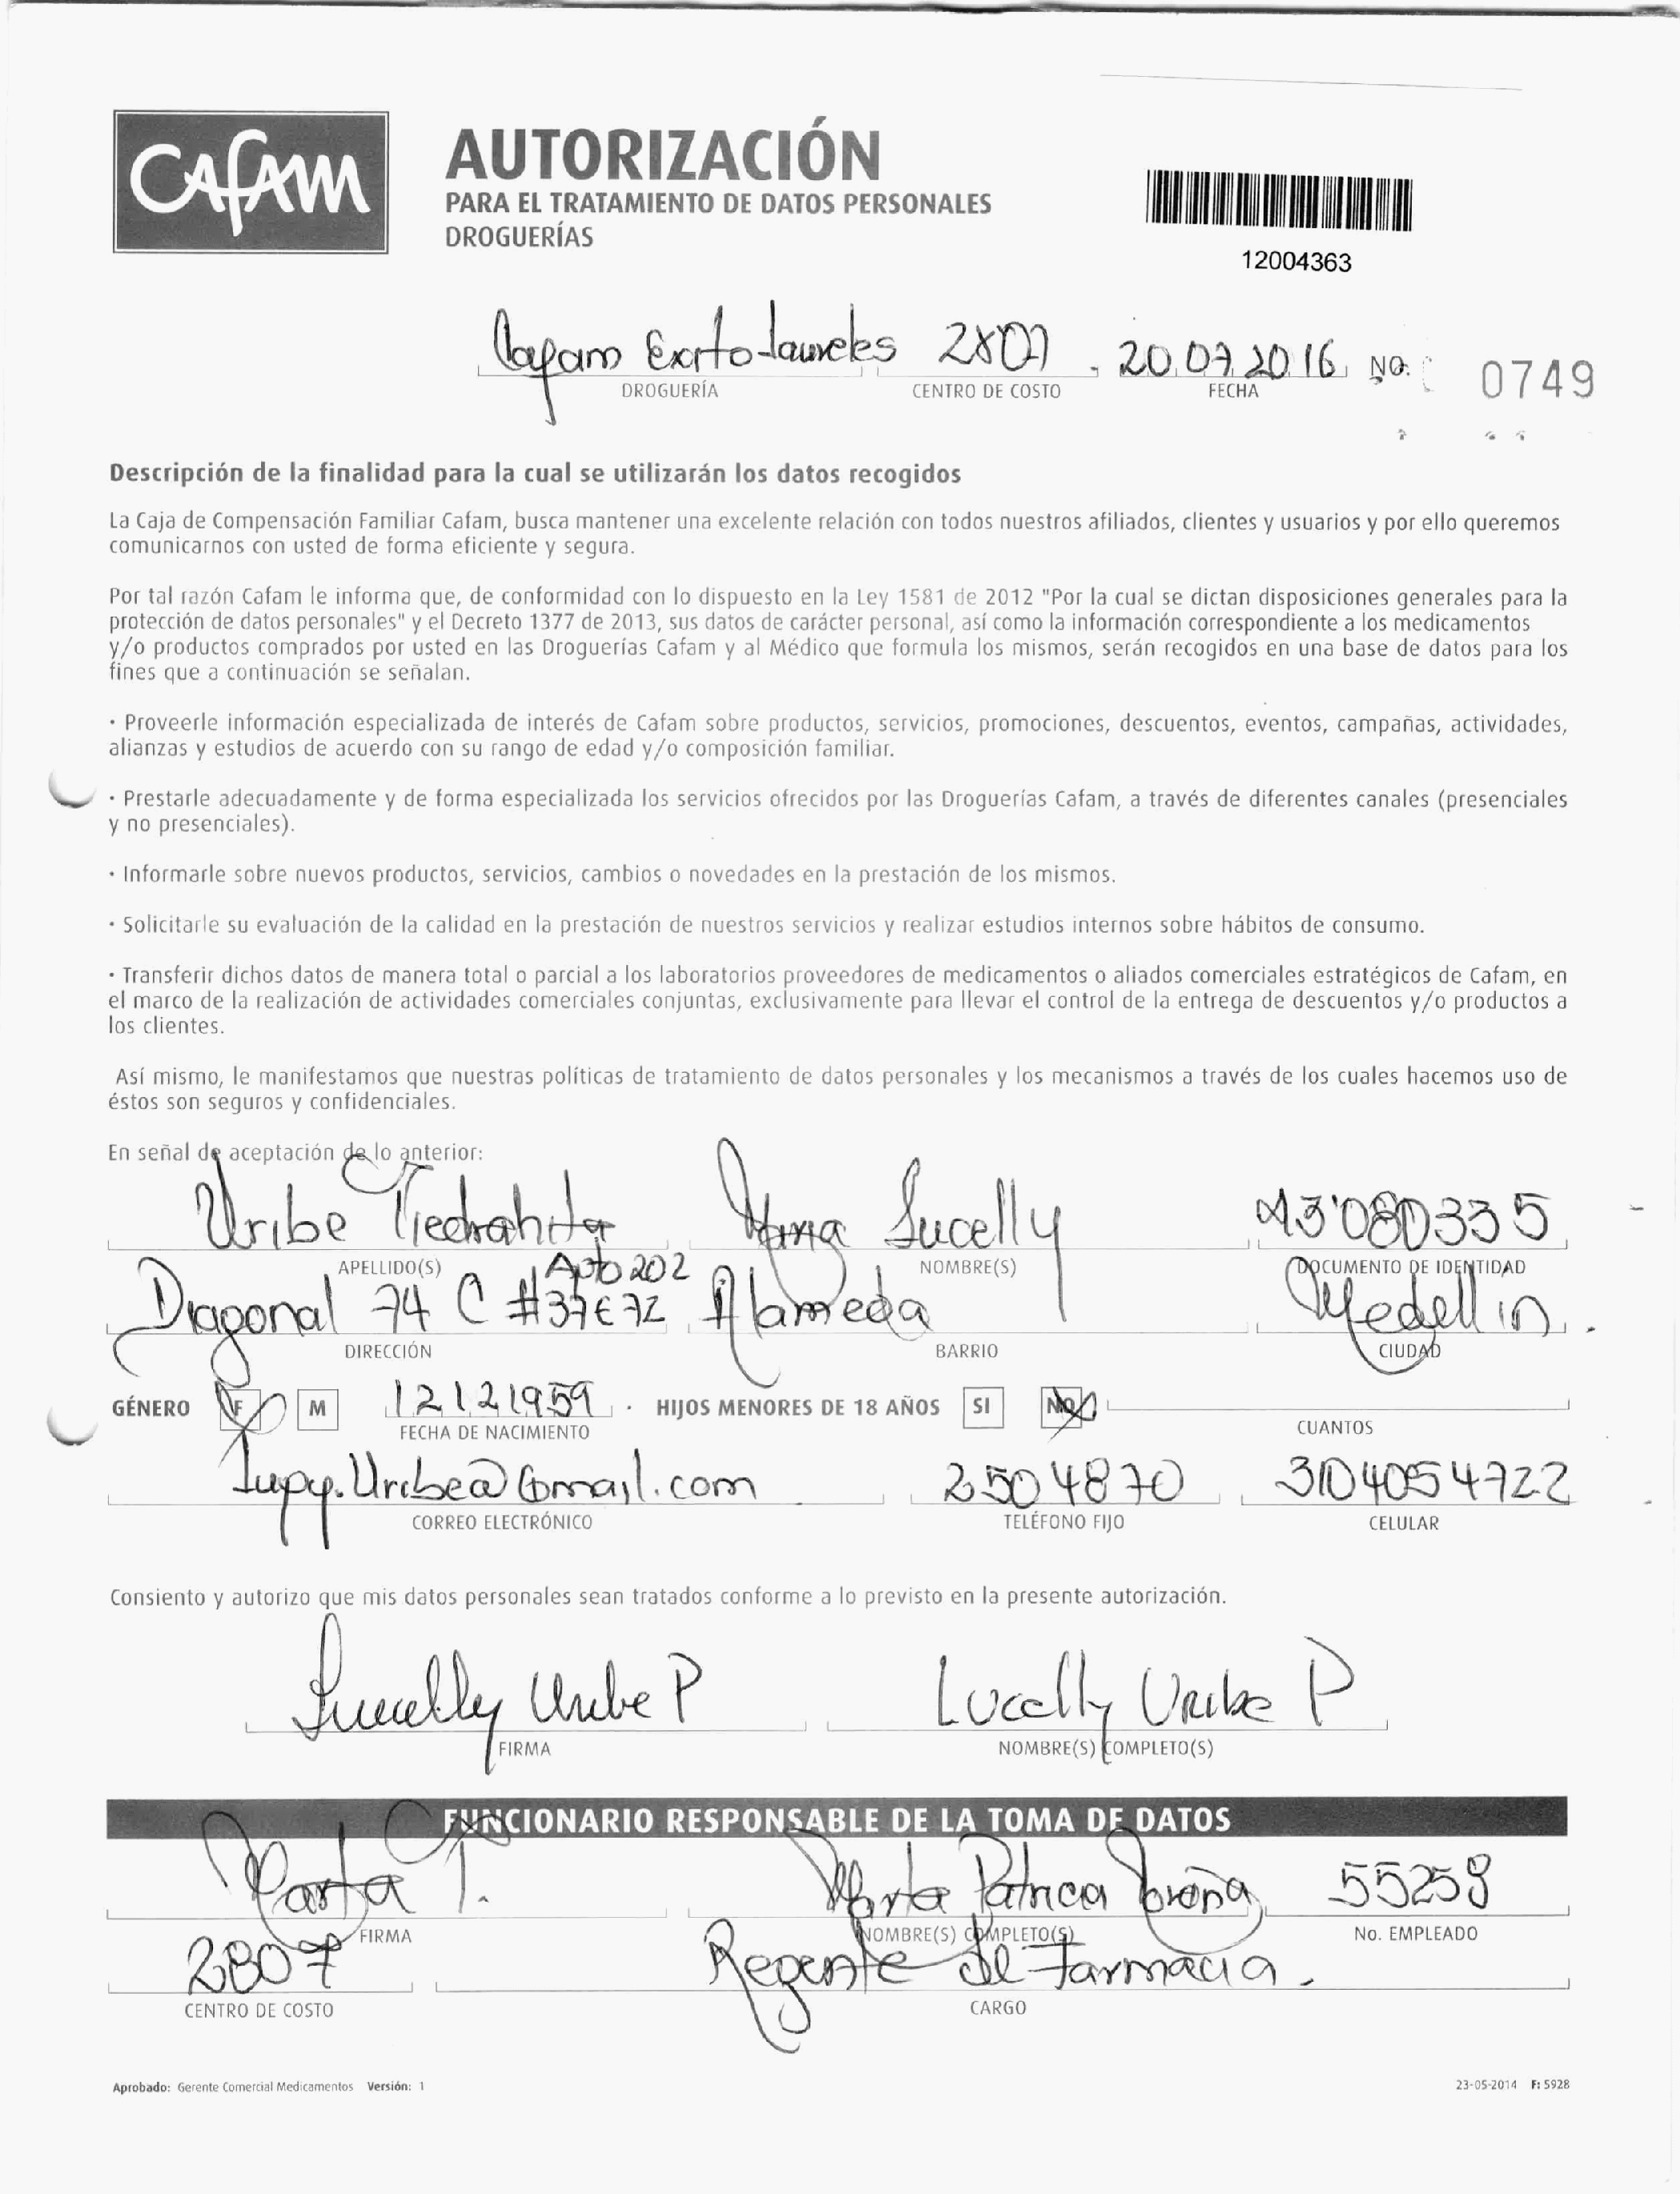 CAFAM
AUTORIZACIÓN
PARA EL TRATAMIENTO DE DATOS PERSONALES
DROGUERÍAS
12004363
Cafam Exito Laureles 2807 20 07 2016 No. 0749
DROGUERÍA CENTRO DE COSTO FECHA
Descripción de la finalidad para la cual se utilizarán los datos recogidos
La Caja de Compensación Familiar Cafam, busca mantener una excelente relación con todos nuestros afiliados, clientes y usuarios y por ello queremos
comunicarnos con usted de forma eficiente y segura.
Por tal razón Cafam le informa que, de conformidad con lo dispuesto en la Ley 1581 de 2012 "Por la cual se dictan disposiciones generales para la
protección de datos personales" y el Decreto 1377 de 2013, sus datos de carácter personal, así como la información correspondiente a los medicamentos
y/o productos comprados por usted en las Droguerías Cafam y al Médico que formula los mismos, serán recogidos en una base de datos para los
fines que a continuación se señalan.
• Proveerle información especializada de interés de Cafam sobre productos, servicios, promociones, descuentos, eventos, campañas, actividades,
alianzas y estudios de acuerdo con su rango de edad y/o composición familiar.
• Prestarle adecuadamente y de forma especializada los servicios ofrecidos por las Droguerías Cafam, a través de diferentes canales (presenciales
y no presenciales).
• Informarle sobre nuevos productos, servicios, cambios o novedades en la prestación de los mismos.
• Solicitarle su evaluación de la calidad en la prestación de nuestros servicios y realizar estudios internos sobre hábitos de consumo.
• Transferir dichos datos de manera total o parcial a los laboratorios proveedores de medicamentos o aliados comerciales estratégicos de Cafam, en
el marco de la realización de actividades comerciales conjuntas, exclusivamente para llevar el control de la entrega de descuentos y/o productos a
los clientes.
Así mismo, le manifestamos que nuestras políticas de tratamiento de datos personales y los mecanismos a través de los cuales hacemos uso de
éstos son seguros y confidenciales.
En señal de aceptación de lo anterior:
Uribe Piedrahita Maria Lucelly 43'080335
APELLIDO(S) NOMBRE(S) DOCUMENTO DE IDENTIDAD
Apto 202
Diagonal 74 C #37E72 Alameda Medellin.
DIRECCIÓN BARRIO CIUDAD
GÉNERO F M 12121959 HIJOS MENORES DE 18 AÑOS SI NO
FECHA DE NACIMIENTO CUANTOS
lupy.Uribe@Gmail.com 2504870 3104054722
CORREO ELECTRÓNICO TELÉFONO FIJO CELULAR
Consiento y autorizo que mis datos personales sean tratados conforme a lo previsto en la presente autorización.
Lucelly Uribe P Lucelly Uribe P
FIRMA NOMBRE(S) COMPLETO(S)
FUNCIONARIO RESPONSABLE DE LA TOMA DE DATOS
Marta T. Marta Patricia 55258
FIRMA NOMBRE(S) COMPLETO(S) No. EMPLEADO
2807 Regente de Farmacia.
CENTRO DE COSTO CARGO
Aprobado: Gerente Comercial Medicamentos Versión: 1 23-05-2014 F: 5928